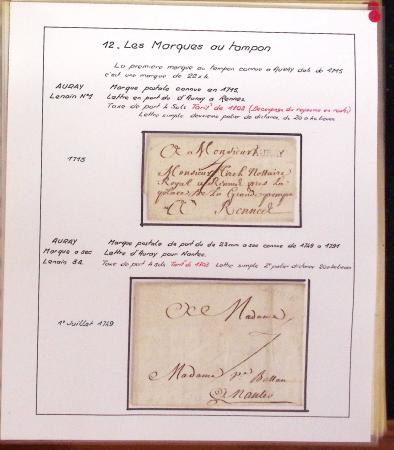 12. Les Marques au tampon
La première marque au tampon connue à Auray date de 1715
c'est une marque de 22 x 4.
AURAY Marque postale connue en 1715.
Lenain N°1 Lettre en port dû d'Auray à Rennes.
Taxe de port 4 Sols Tarif de 1703 (Decoupage du royaume en rayons)
Lettre simple deuxième palier de distance de 20 à lieues
1715
A Monsieur
Monsieur Notaire
Royal a Rennes pres la
place de la Grande pompe
A Rennes
AURAY Marque postale de port dû de 23mm a sec connue de 1749 à 1791
Marque a sec Lettre d'Auray pour Nantes.
Lenain 3A. Taxe de port 4 sols Tarif de 1703 Lettre simple 2° palier distance 20 lieues
1° Juillet 1749
A Madame
Madame
Nantes